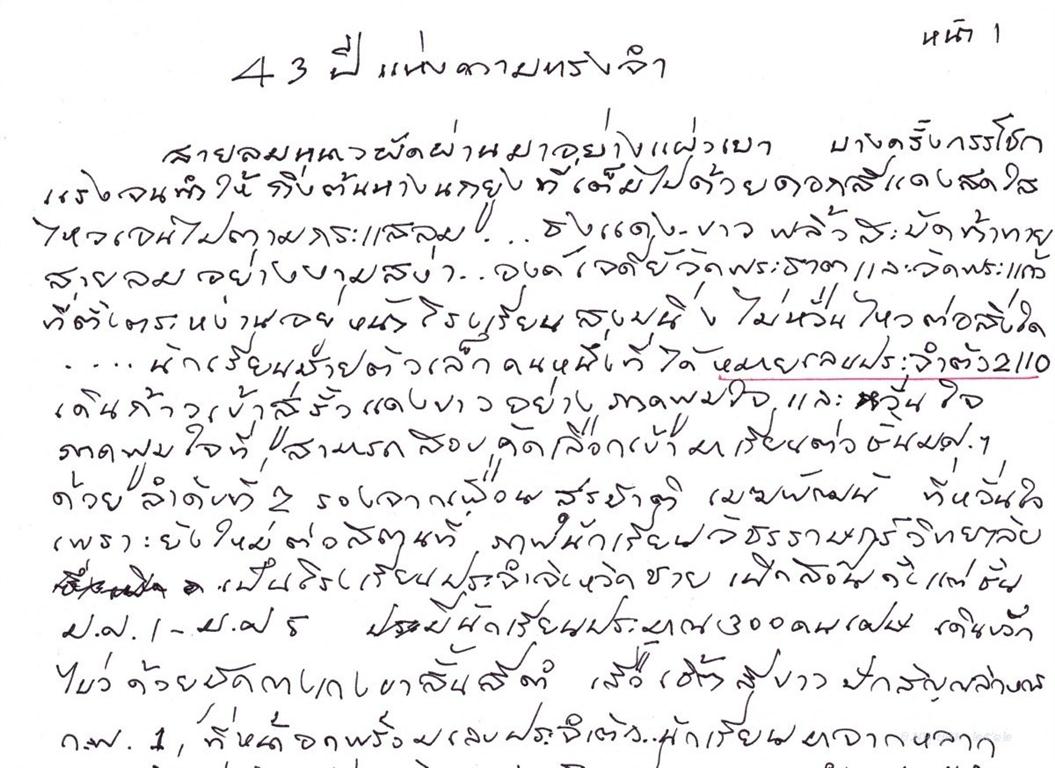 หน้า 1
43 ปี แห่งความทรงจำ
สายลมหนาวพัดผ่านมาอย่างแผ่วเบา บางครั้งกรรโชก
แรงจนทำให้ กิ่งต้นหางนกยูง ที่เต็มไปด้วยดอกสีแดงสดใส
ไหวเอนไปตามกระแสลม ... ธงแดง-ขาว พลิ้วสะบัดท้าทาย
สายลม อย่างงามสง่า .. องค์เจดีย์วัดพระธาตุ และวัดพระแก้ว
ที่ตั้งตระหง่านอยู่หน้าโรงเรียน สงบนิ่ง ไม่หวั่นไหวต่อสิ่งใด
.... นักเรียนชายตัวเล็กคนหนึ่งที่ได้หมายเลขประจำตัว 2110
เดินก้าวเข้าสู่รั้วแดงขาวอย่าง ภาคภูมิใจ และ หวั่นใจ
ภาคภูมิใจที่ สามารถสอบคัดเลือกเข้ามาเรียนต่อชั้น ม.ศ. 1
ด้วยลำดับที่ 2 รองจากเพื่อน สรชาติ ที่หวั่นใจ
เพราะยังใหม่ต่อสถานที่ ภาพนักเรียนวัชรราษฎร์วิทยาลัย
เป็นโรงเรียนประจำจังหวัดชาย เปิดสอนตั้งแต่ชั้น
ม.ศ. 1 - ม.ศ 5 มีนักเรียนประมาณ 300 คนเศษ เดินขวัก
ไขว่ด้วยชุดกางเกงขาสั้นสีดำ เสื้อเชิ้ตสีขาว ปักสัญลักษณ์
ก.พ. 1, ที่หน้าอกพร้อมเลขประจำตัว..นักเรียนมาจากหลาก